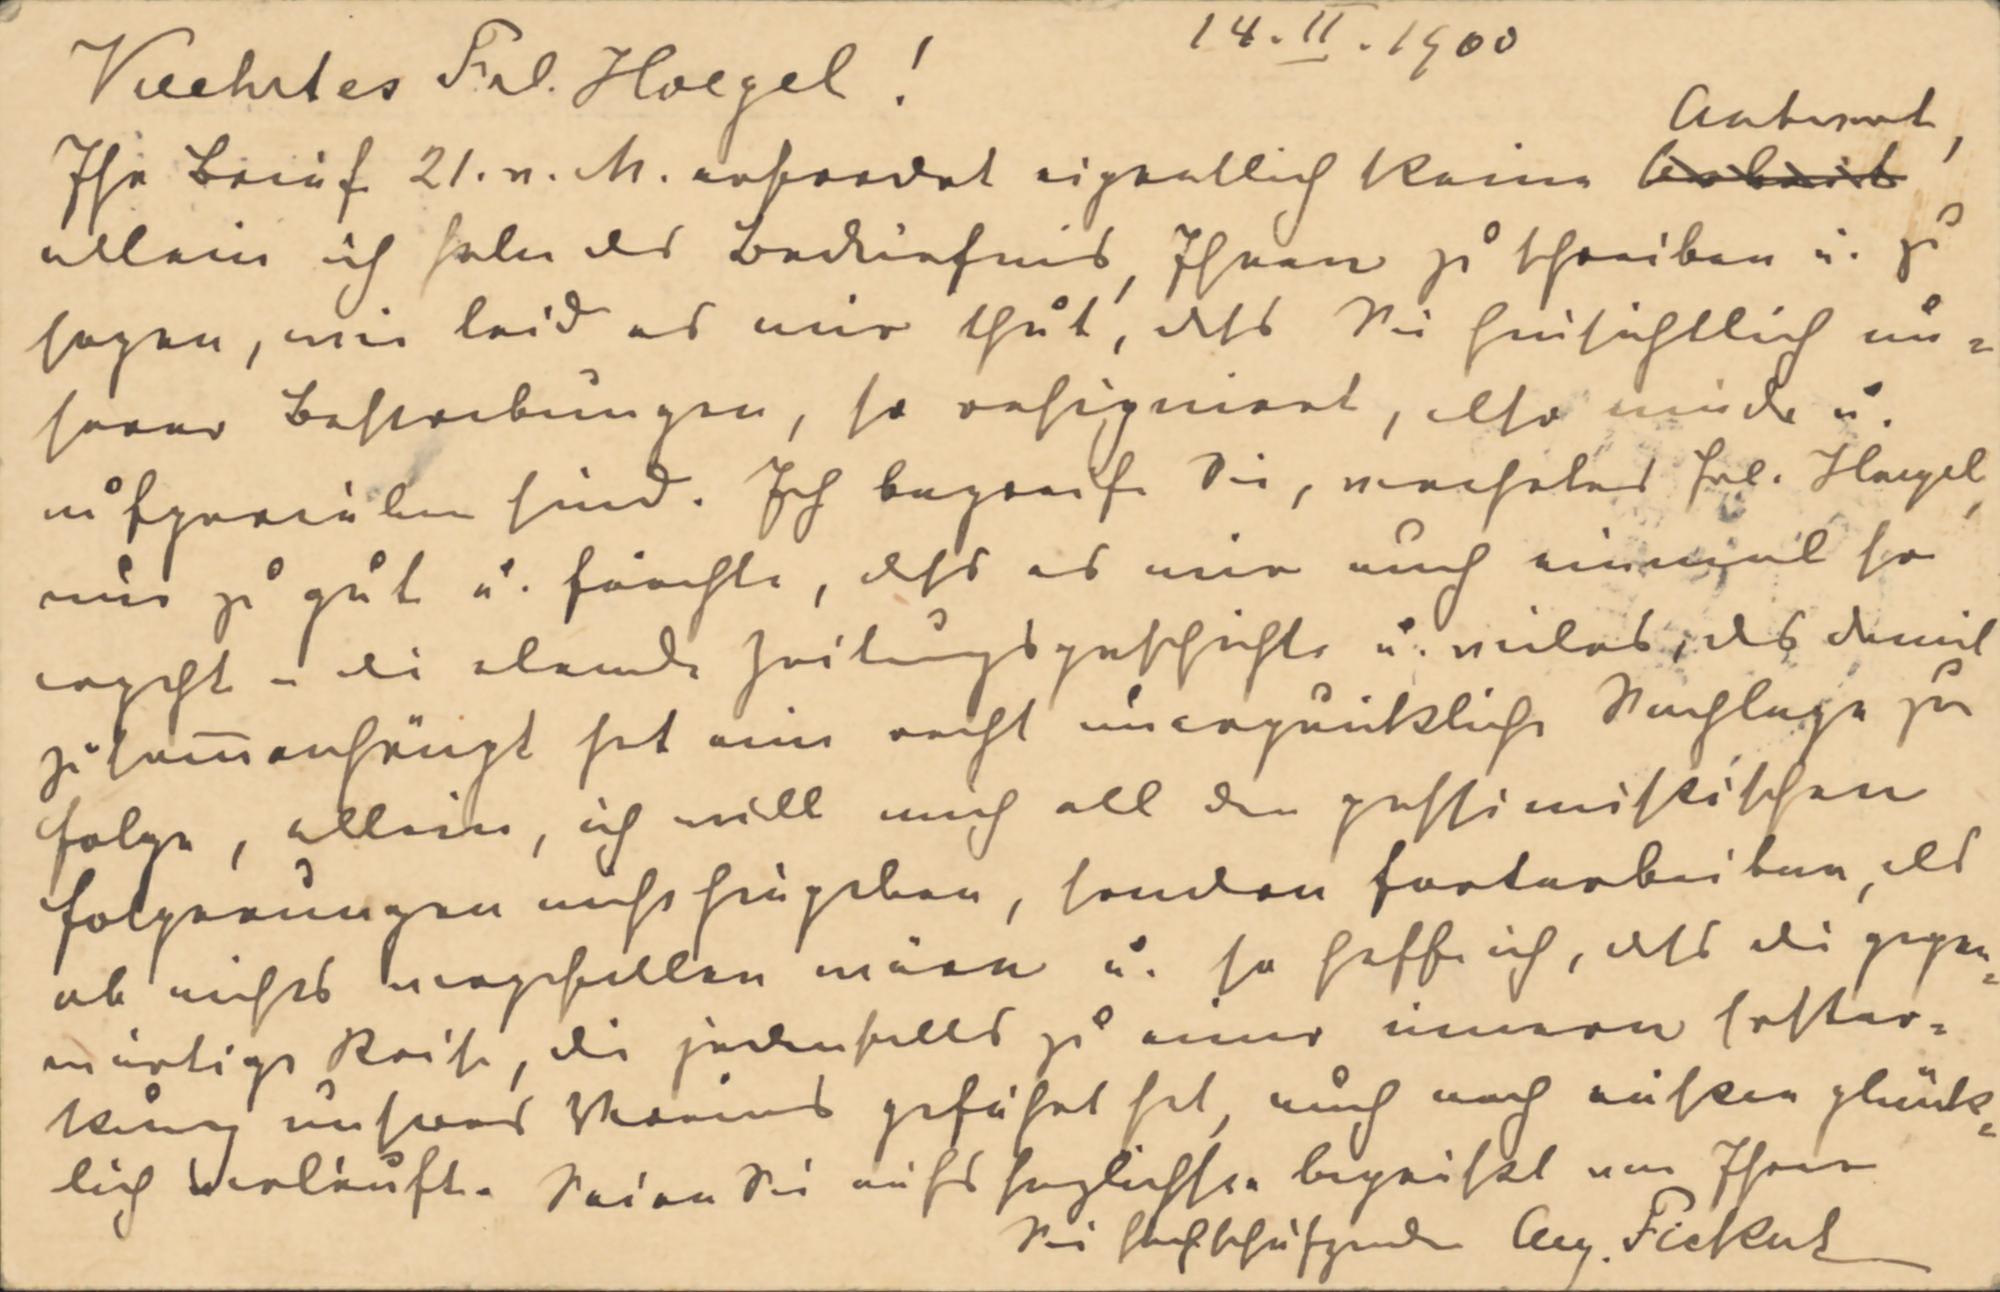 14. II. 1900
Verehrtes Frl. Hoegel!
Antwort,
Ihr Brief 21. v. M. erfordert eigentlich keine Arbeit
allein ich habe das Bedürfnis, Ihnen zu schreiben u. zu
sagen, wie leid es mir thut, daß Sie hinsichtlich un=
serer Bestrebungen, so resigniert, also müde u.
aufgerieben sind. Ich begreife Sie, verehrtes Frl. Hoegel,
nur zu gut u. fürchte, daß es mir auch einmal so
ergeht - die elende Zeitungsgeschichte u. vieles, das damit
zusam̅enhängt hat eine recht unerquickliche Nachlage zur
Folge, allein, ich will mich all den pessimistischen
Folgerungen nicht hingeben, sondern fortarbeiten, als
ob nichts vorgefallen wäre u. so hoffe ich, daß die gegen=
wärtige Krise, die jedenfalls zu einer inneren Erstar=
kung unseres Vereins geführt hat, auch nach außen glück=
lich verläuft. Seien Sie aufs herzlichste begrüßt von Ihrer
Sie hochschätzenden Aug. Fickert